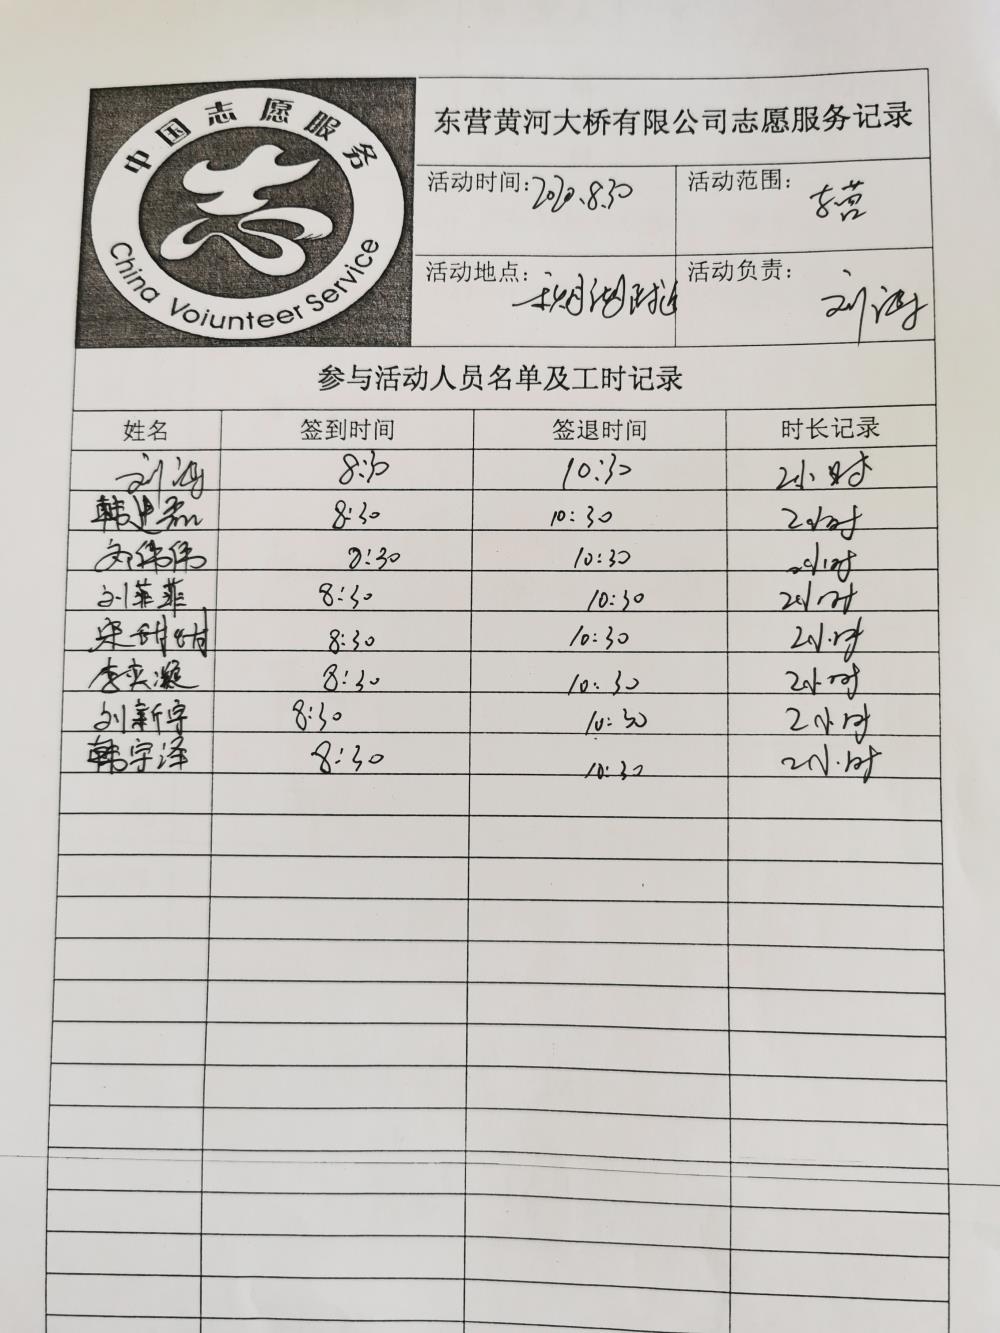 中国志愿服务
China Voiunteer Service
东营黄河大桥有限公司志愿服务记录
活动时间:2020.8.30 活动范围: 东营
活动地点: 活动负责: 刘涛
参与活动人员名单及工时记录
姓名 签到时间 签退时间 时长记录
刘涛 8:30 10:30 2小时
韩建磊 8:30 10:30 2小时
邓伟伟 8:30 10:30 2小时
刘菲菲 8:30 10:30 2小时
宋甜甜 8:30 10:30 2小时
李奕凝 8:30 10:30 2小时
刘新宇 8:30 10:30 2小时
韩宇泽 8:30 10:30 2小时